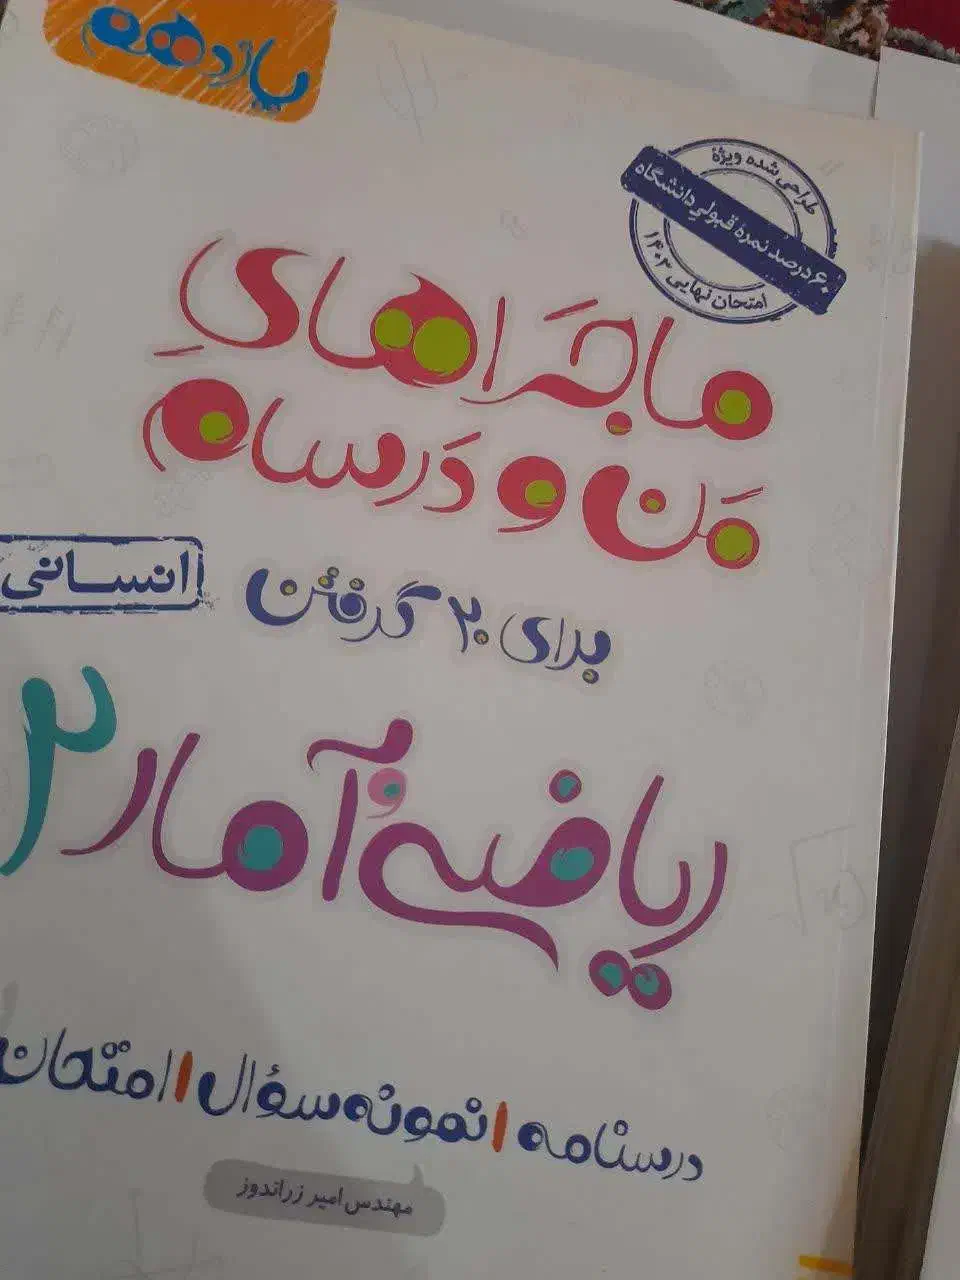 یازدهم
طراحی شده ویژهٔ
۶۰ درصد نمرهٔ قبولی دانشگاه
امتحان نهایی ۱۴۰۳
ماجراهای
من و درسام
برای ۲۰ گرفتن
انسانی
ریاضی و آمار ۲
درسنامه | نمونه سؤال | امتحان
مهندس امیر زراندوز